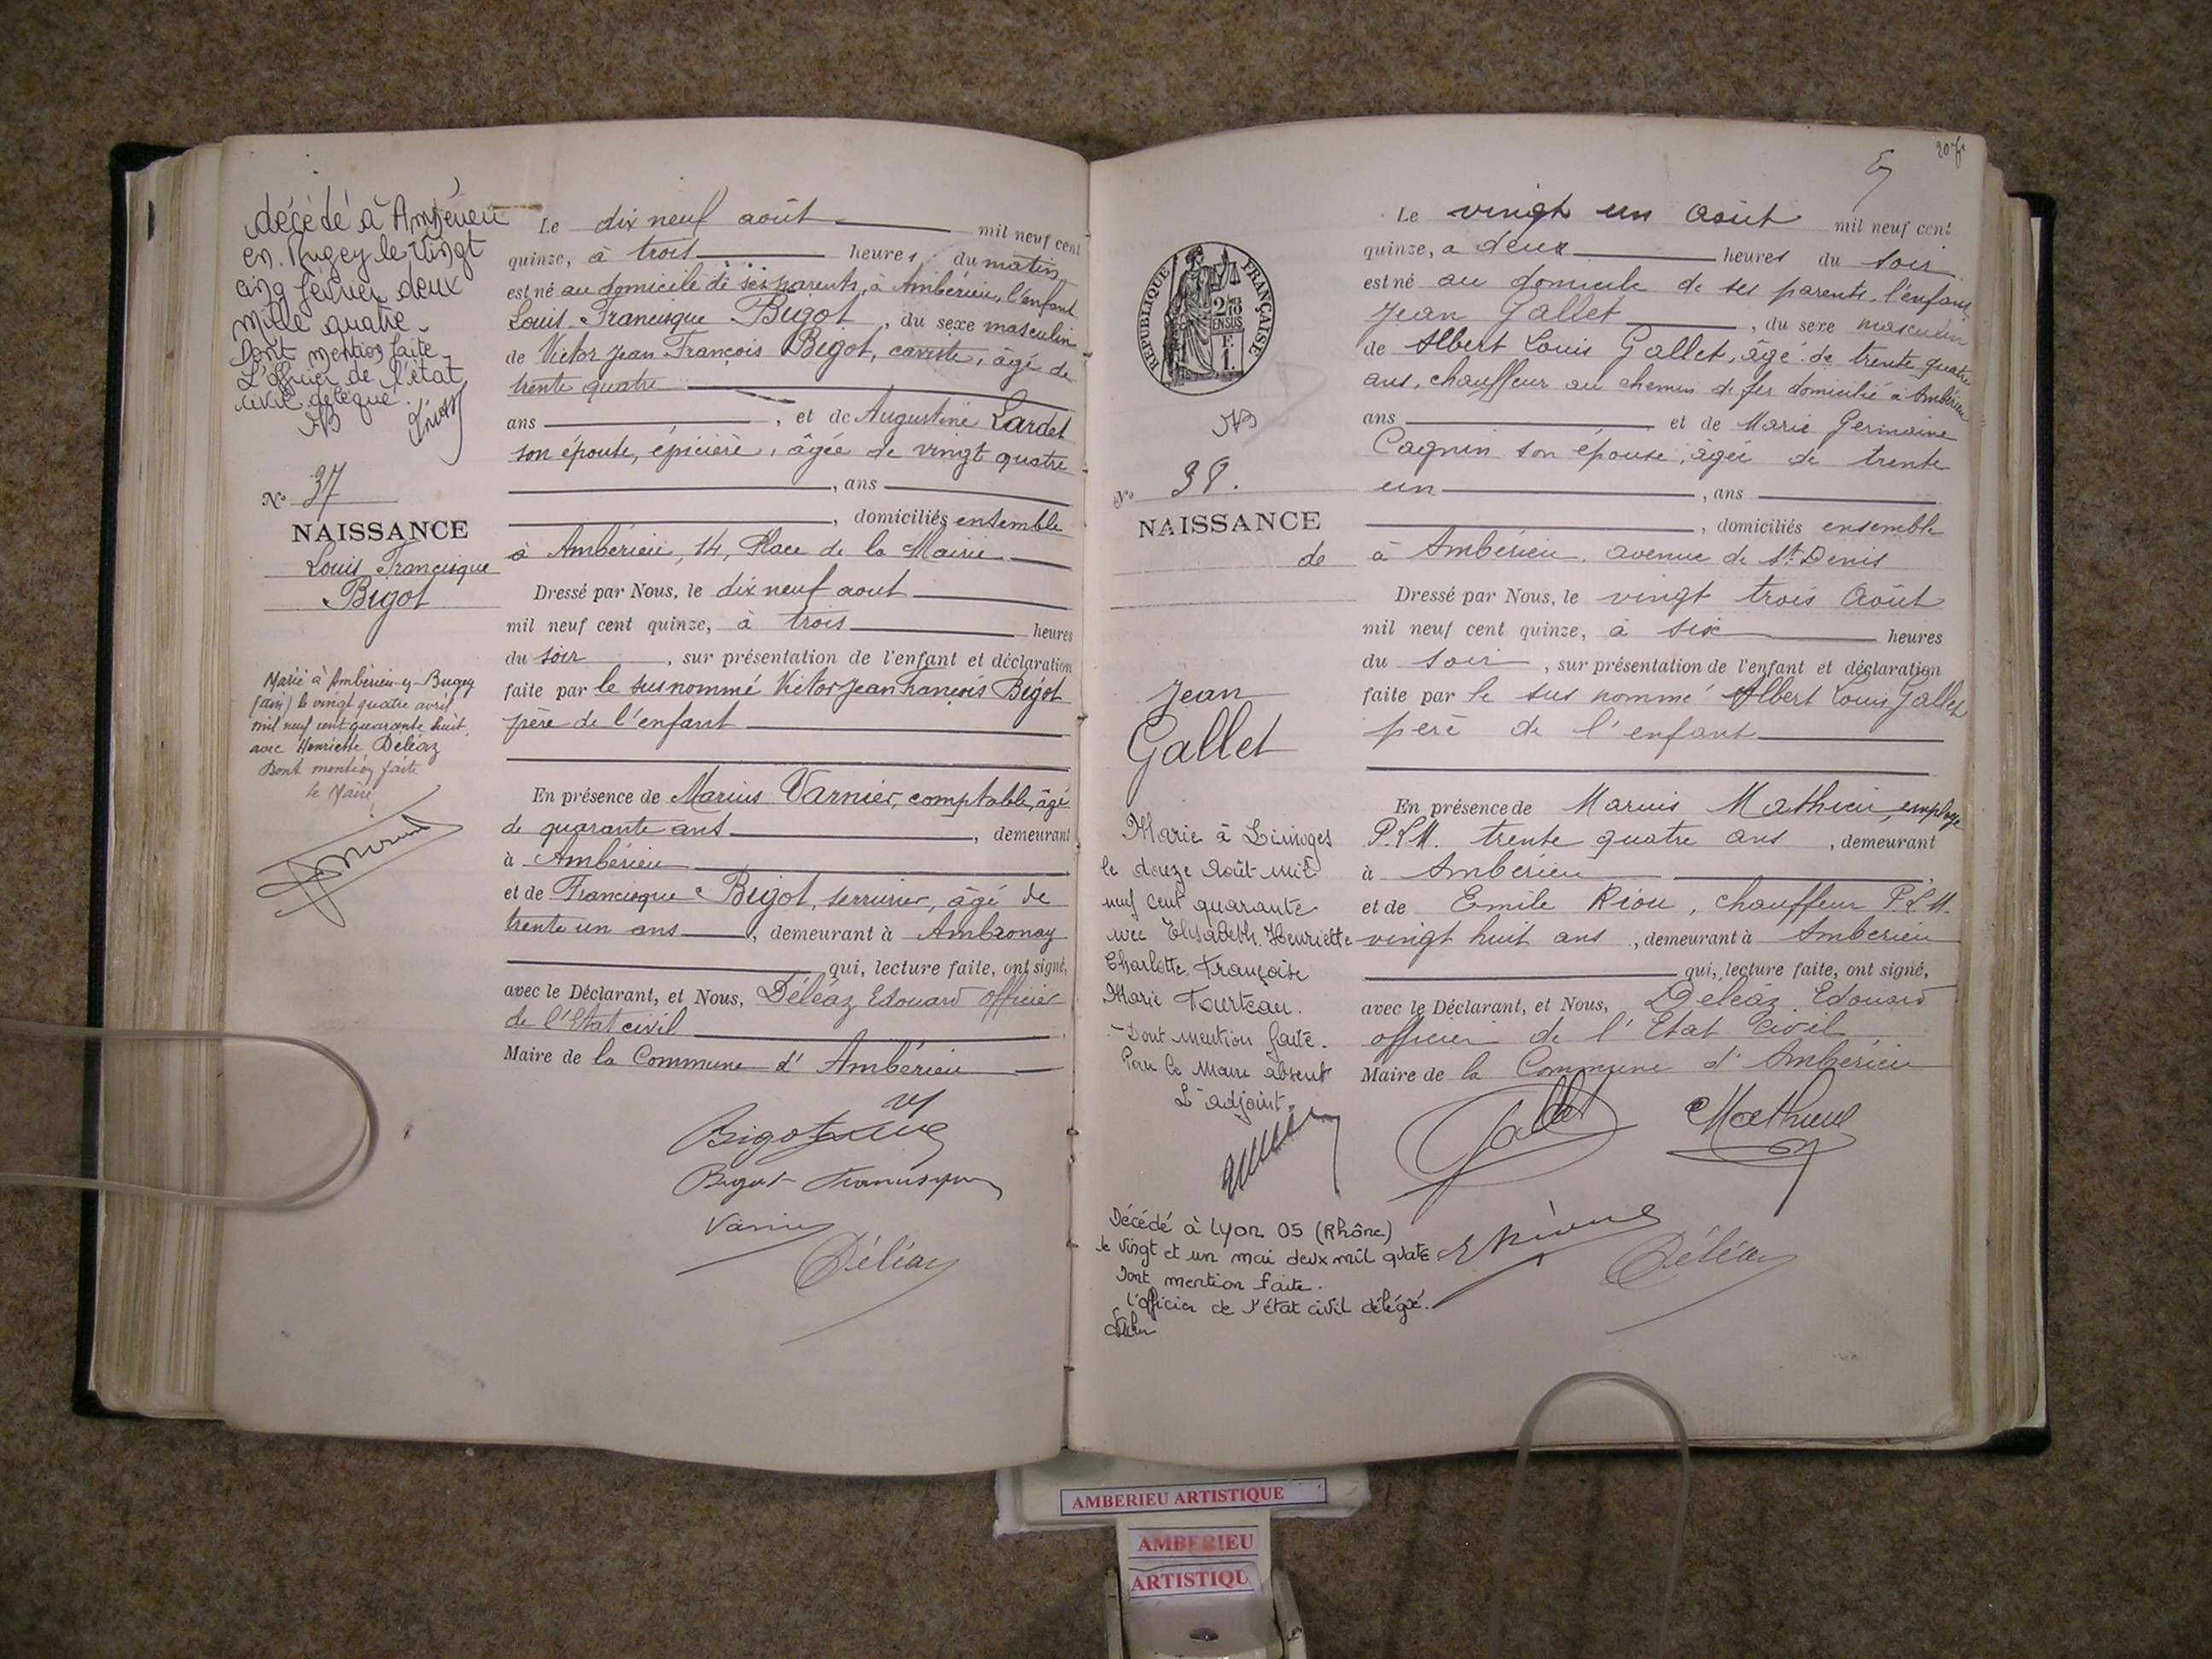 décédé à Ambérieu
en Bugey le vingt
cinq février deux
mille quatre.
Dont mention faite
L'officier de l'état
civil délégué.
N° 37
NAISSANCE
Louis Francisque
Bigot
Marié à Ambérieu-en-Bugey
(ain) le vingt quatre avril
mil neuf cent quarante huit
avec Henriette Déléaz
Dont mention faite
le Maire
Le dix neuf août mil neuf cent
quinze, à trois heures du matin
est né au domicile de ses parents, à Ambérieu, l'enfant
Louis Francisque Bigot, du sexe masculin
de Victor Jean François Bigot, caviste, âgé de
trente quatre
ans, et de Augustine Lardet
son épouse, épicière, âgée de vingt quatre
, ans
, domiciliés ensemble
à Ambérieu, 14, Place de la Mairie
Dressé par Nous, le dix neuf aout
mil neuf cent quinze, à trois heures
du soir, sur présentation de l'enfant et déclaration
faite par le susnommé Victor Jean François Bigot
père de l'enfant
En présence de Marius Varnier, comptable, âgé
de quarante ans, demeurant
à Ambérieu
et de Francisque Bigot, serrurier, âgé de
trente un ans, demeurant à Ambronay
qui, lecture faite, ont signé,
avec le Déclarant, et Nous, Déléaz Edouard officier
de l'Etat civil
Maire de la Commune d'Ambérieu
Bigot
Bigot Francisque
Varnier
Déléaz
207
RÉPUBLIQUE FRANÇAISE
N° 38.
NAISSANCE
de
Jean
Gallet
Marié à Limoges
le douze Août mil
neuf cent quarante
avec Elisabeth Henriette
Charlotte Françoise
Marie Tourteau.
Dont mention faite.
Pour le Maire absent
L'adjoint.
Décédé à Lyon 05 (Rhône)
le vingt et un mai deux mil quatre
Dont mention faite.
L'officier de l'état civil délégué.
Le vingt un Août mil neuf cent
quinze, a deux heures du soir
est né au domicile de ses parents, l'enfant
Jean Gallet, du sexe masculin
de Albert Louis Gallet, âgé de trente quatre
ans, chauffeur au chemin de fer domicilié à Ambérieu
ans et de Marie Germaine
Cagnin son épouse, âgée de trente
un, ans
, domiciliés ensemble
à Ambérieu. avenue de St Denis
Dressé par Nous, le vingt trois Août
mil neuf cent quinze, à six heures
du soir, sur présentation de l'enfant et déclaration
faite par le sus nommé Albert Louis Gallet
père de l'enfant
En présence de Marius Mathieu, employé
P.L.M. trente quatre ans, demeurant
à Ambérieu
et de Emile Riou, chauffeur P.L.M.
vingt huit ans, demeurant à Ambérieu
qui, lecture faite, ont signé,
avec le Déclarant, et Nous, Déléaz Edouard
officier de l'Etat Civil
Maire de la Commune d'Ambérieu
Gallet Mathieu
Déléaz
AMBERIEU ARTISTIQUE
AMBERIEU
ARTISTIQU